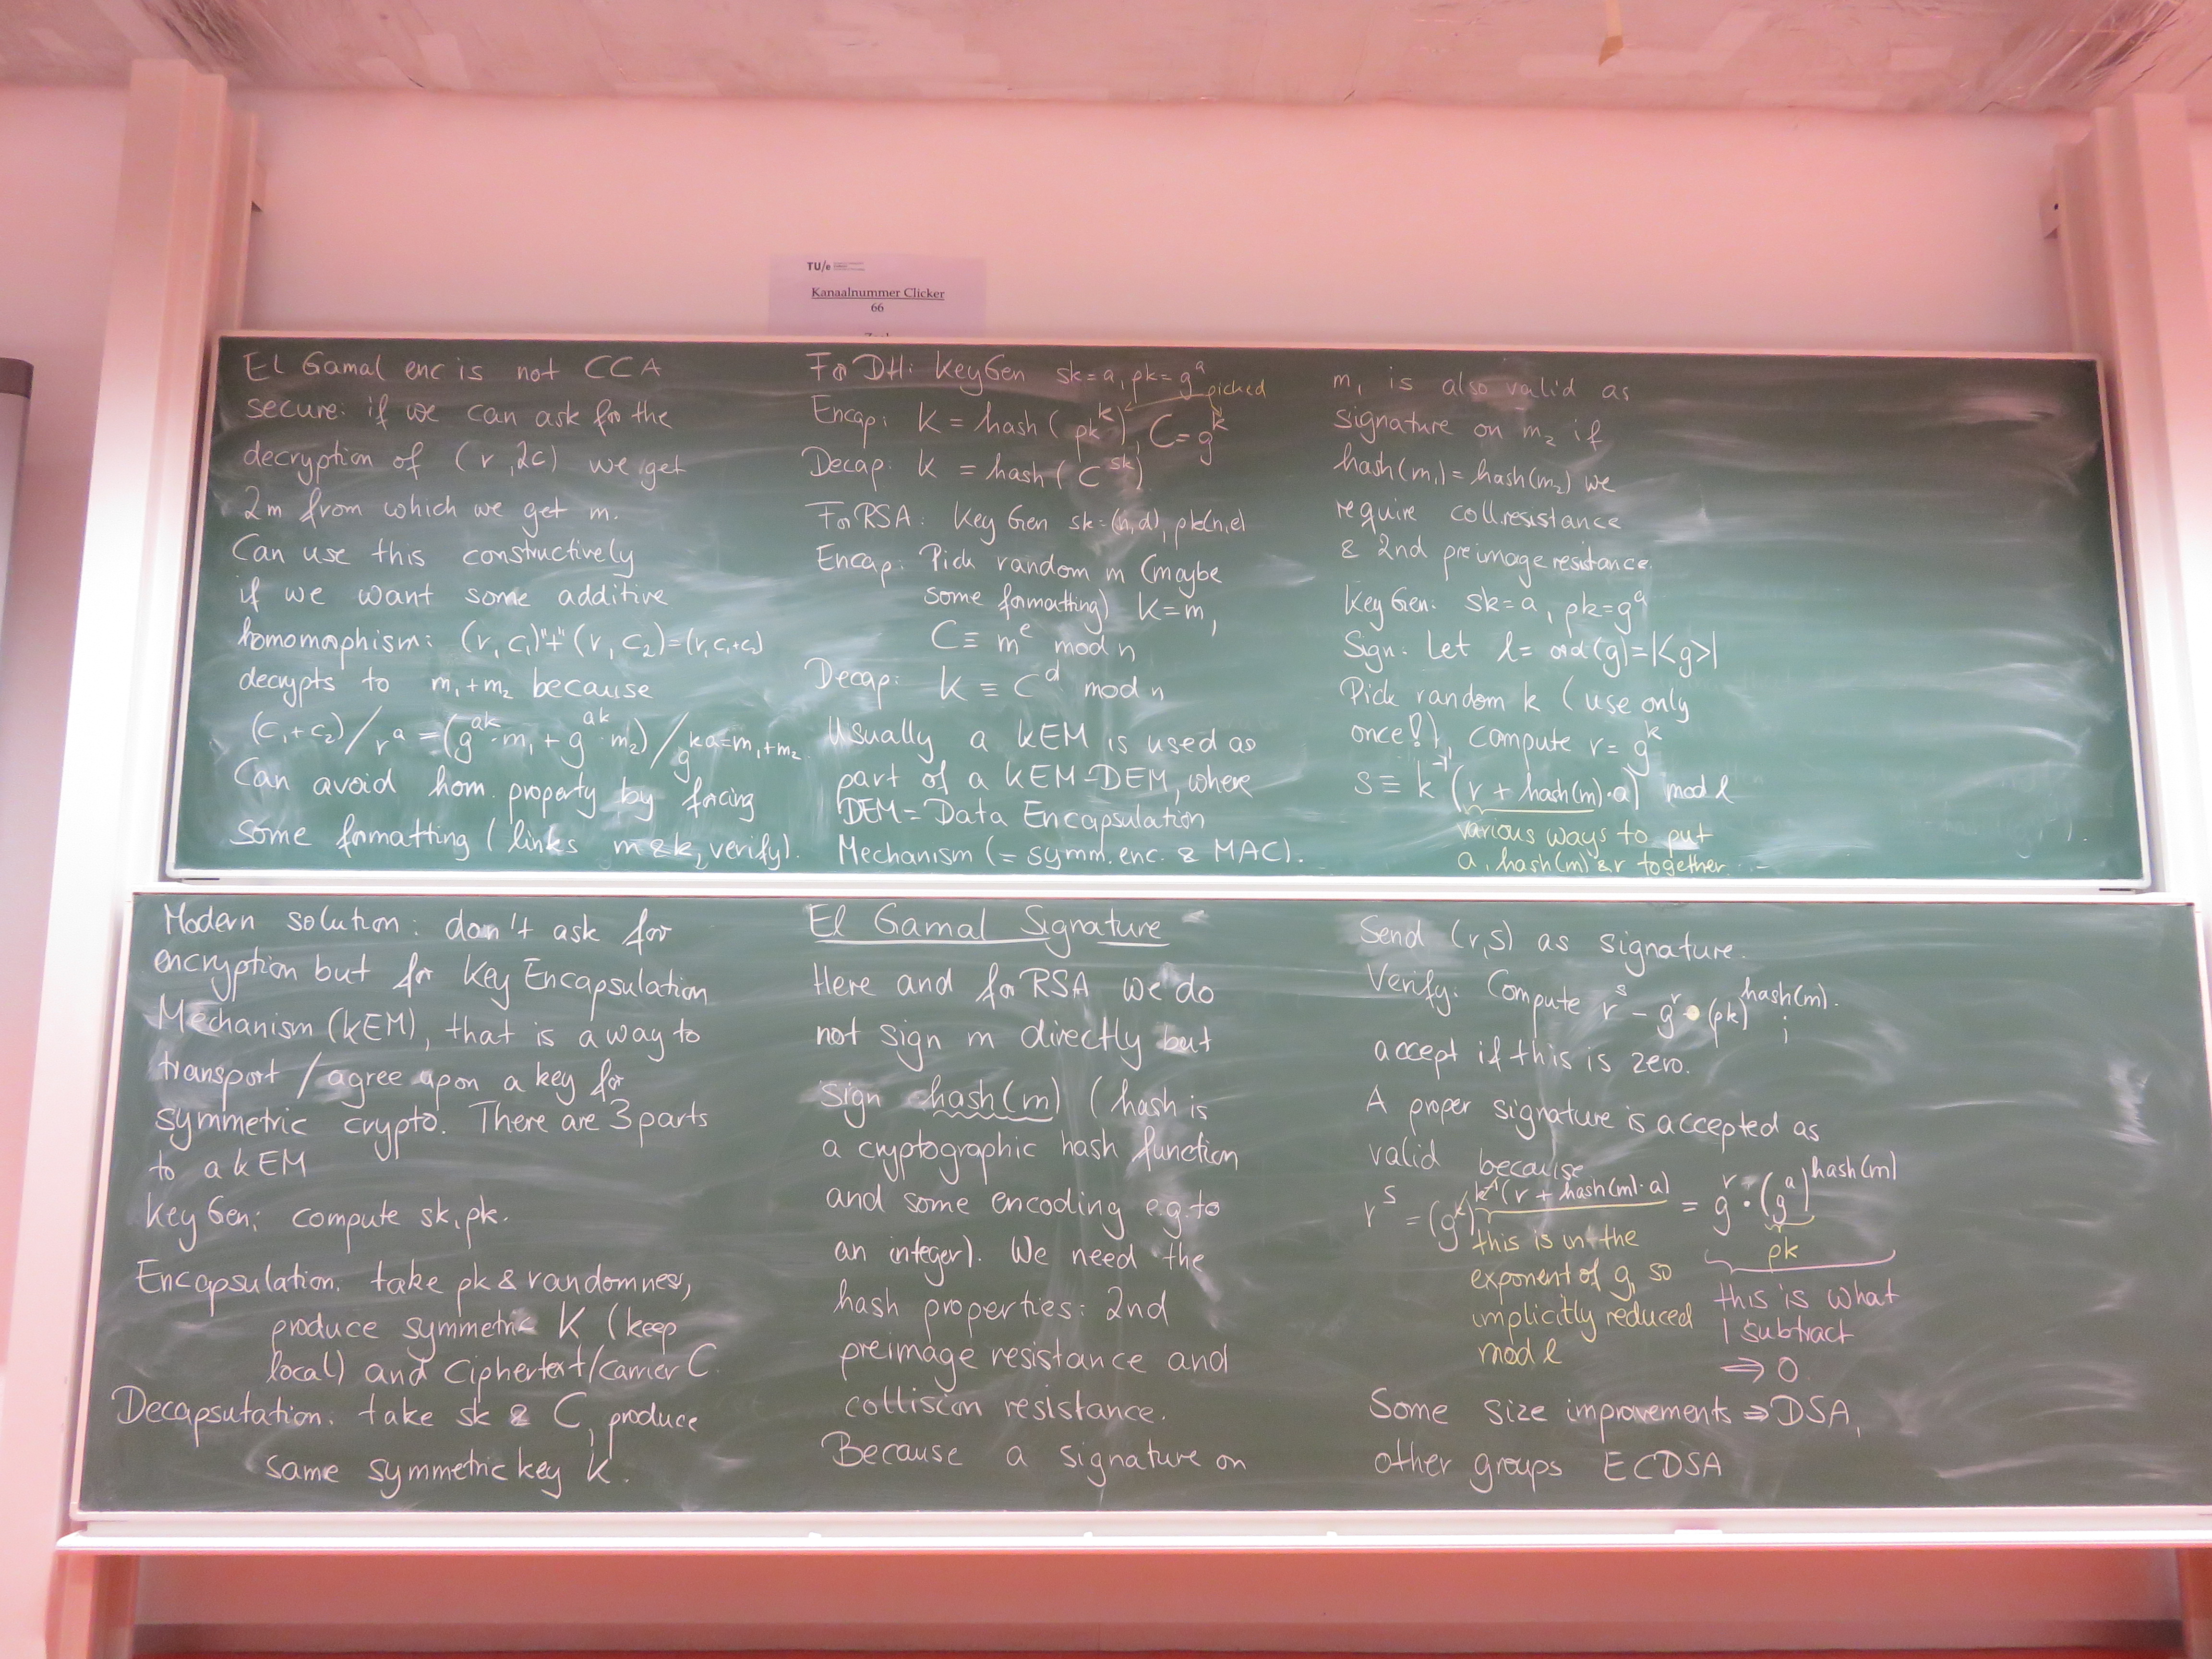 TU/e
Kanaalnummer Clicker
66
El Gamal enc is not CCA
secure: if we can ask for the
decryption of (r, 2c) we get
2m from which we get m.
Can use this constructively
if we want some additive
homomorphism: (r, c₁)"+"(r, c₂)=(r, c₁+c₂)
decrypts to m₁+m₂ because
(c₁+c₂)/r^a = (g^ak·m₁ + g^ak·m₂)/g^ka=m₁+m₂.
Can avoid hom. property by forcing
some formatting (links m & k, verify).
Modern solution: don't ask for
encryption but for Key Encapsulation
Mechanism (KEM), that is a way to
transport / agree upon a key for
symmetric crypto. There are 3 parts
to a KEM
Key Gen: compute sk, pk.
Encapsulation: take pk & randomness,
produce symmetric K (keep
local) and Ciphertext/Carrier C.
Decapsutation: take sk & C, produce
same symmetric key K.
For DH: KeyGen sk=a, pk=g^a
picked
Encap: K = hash(pk^k), C=g^k
Decap: K = hash(C^sk)
For RSA: Key Gen sk=(n,d), pk(n,e)
Encap: Pick random m (maybe
some formatting) K=m,
C≡ m^e mod n
Decap: K ≡ C^d mod n
Usually a KEM is used as
part of a KEM-DEM, where
DEM=Data Encapsulation
Mechanism (= symm. enc. & MAC).
El Gamal Signature
Here and for RSA we do
not sign m directly but
sign hash(m) (hash is
a cryptographic hash function
and some encoding e.g. to
an integer). We need the
hash properties: 2nd
preimage resistance and
collision resistance.
Because a signature on
m₁ is also valid as
signature on m₂ if
hash(m₁)=hash(m₂) we
require coll.resistance
& 2nd preimage resistance.
Key Gen: sk=a, pk=g^a
Sign: Let l= ord(g)=|<g>|
Pick random k (use only
once!), compute r= g^k
s≡ k^-1(r + hash(m)·a) mod l
various ways to put
a, hash(m) & r together
Send (r,s) as signature.
Verify: Compute r^s - g^r · (pk)^hash(m);
accept if this is zero.
A proper signature is accepted as
valid because
r^s = (g^k)^k^-1(r + hash(m)·a) = g^r · (g^a)^hash(m)
this is in the
exponent of g, so
implicitly reduced
mod l
pk
this is what
I subtract
⇒ 0.
Some size improvements ⇒ DSA,
other groups ECDSA